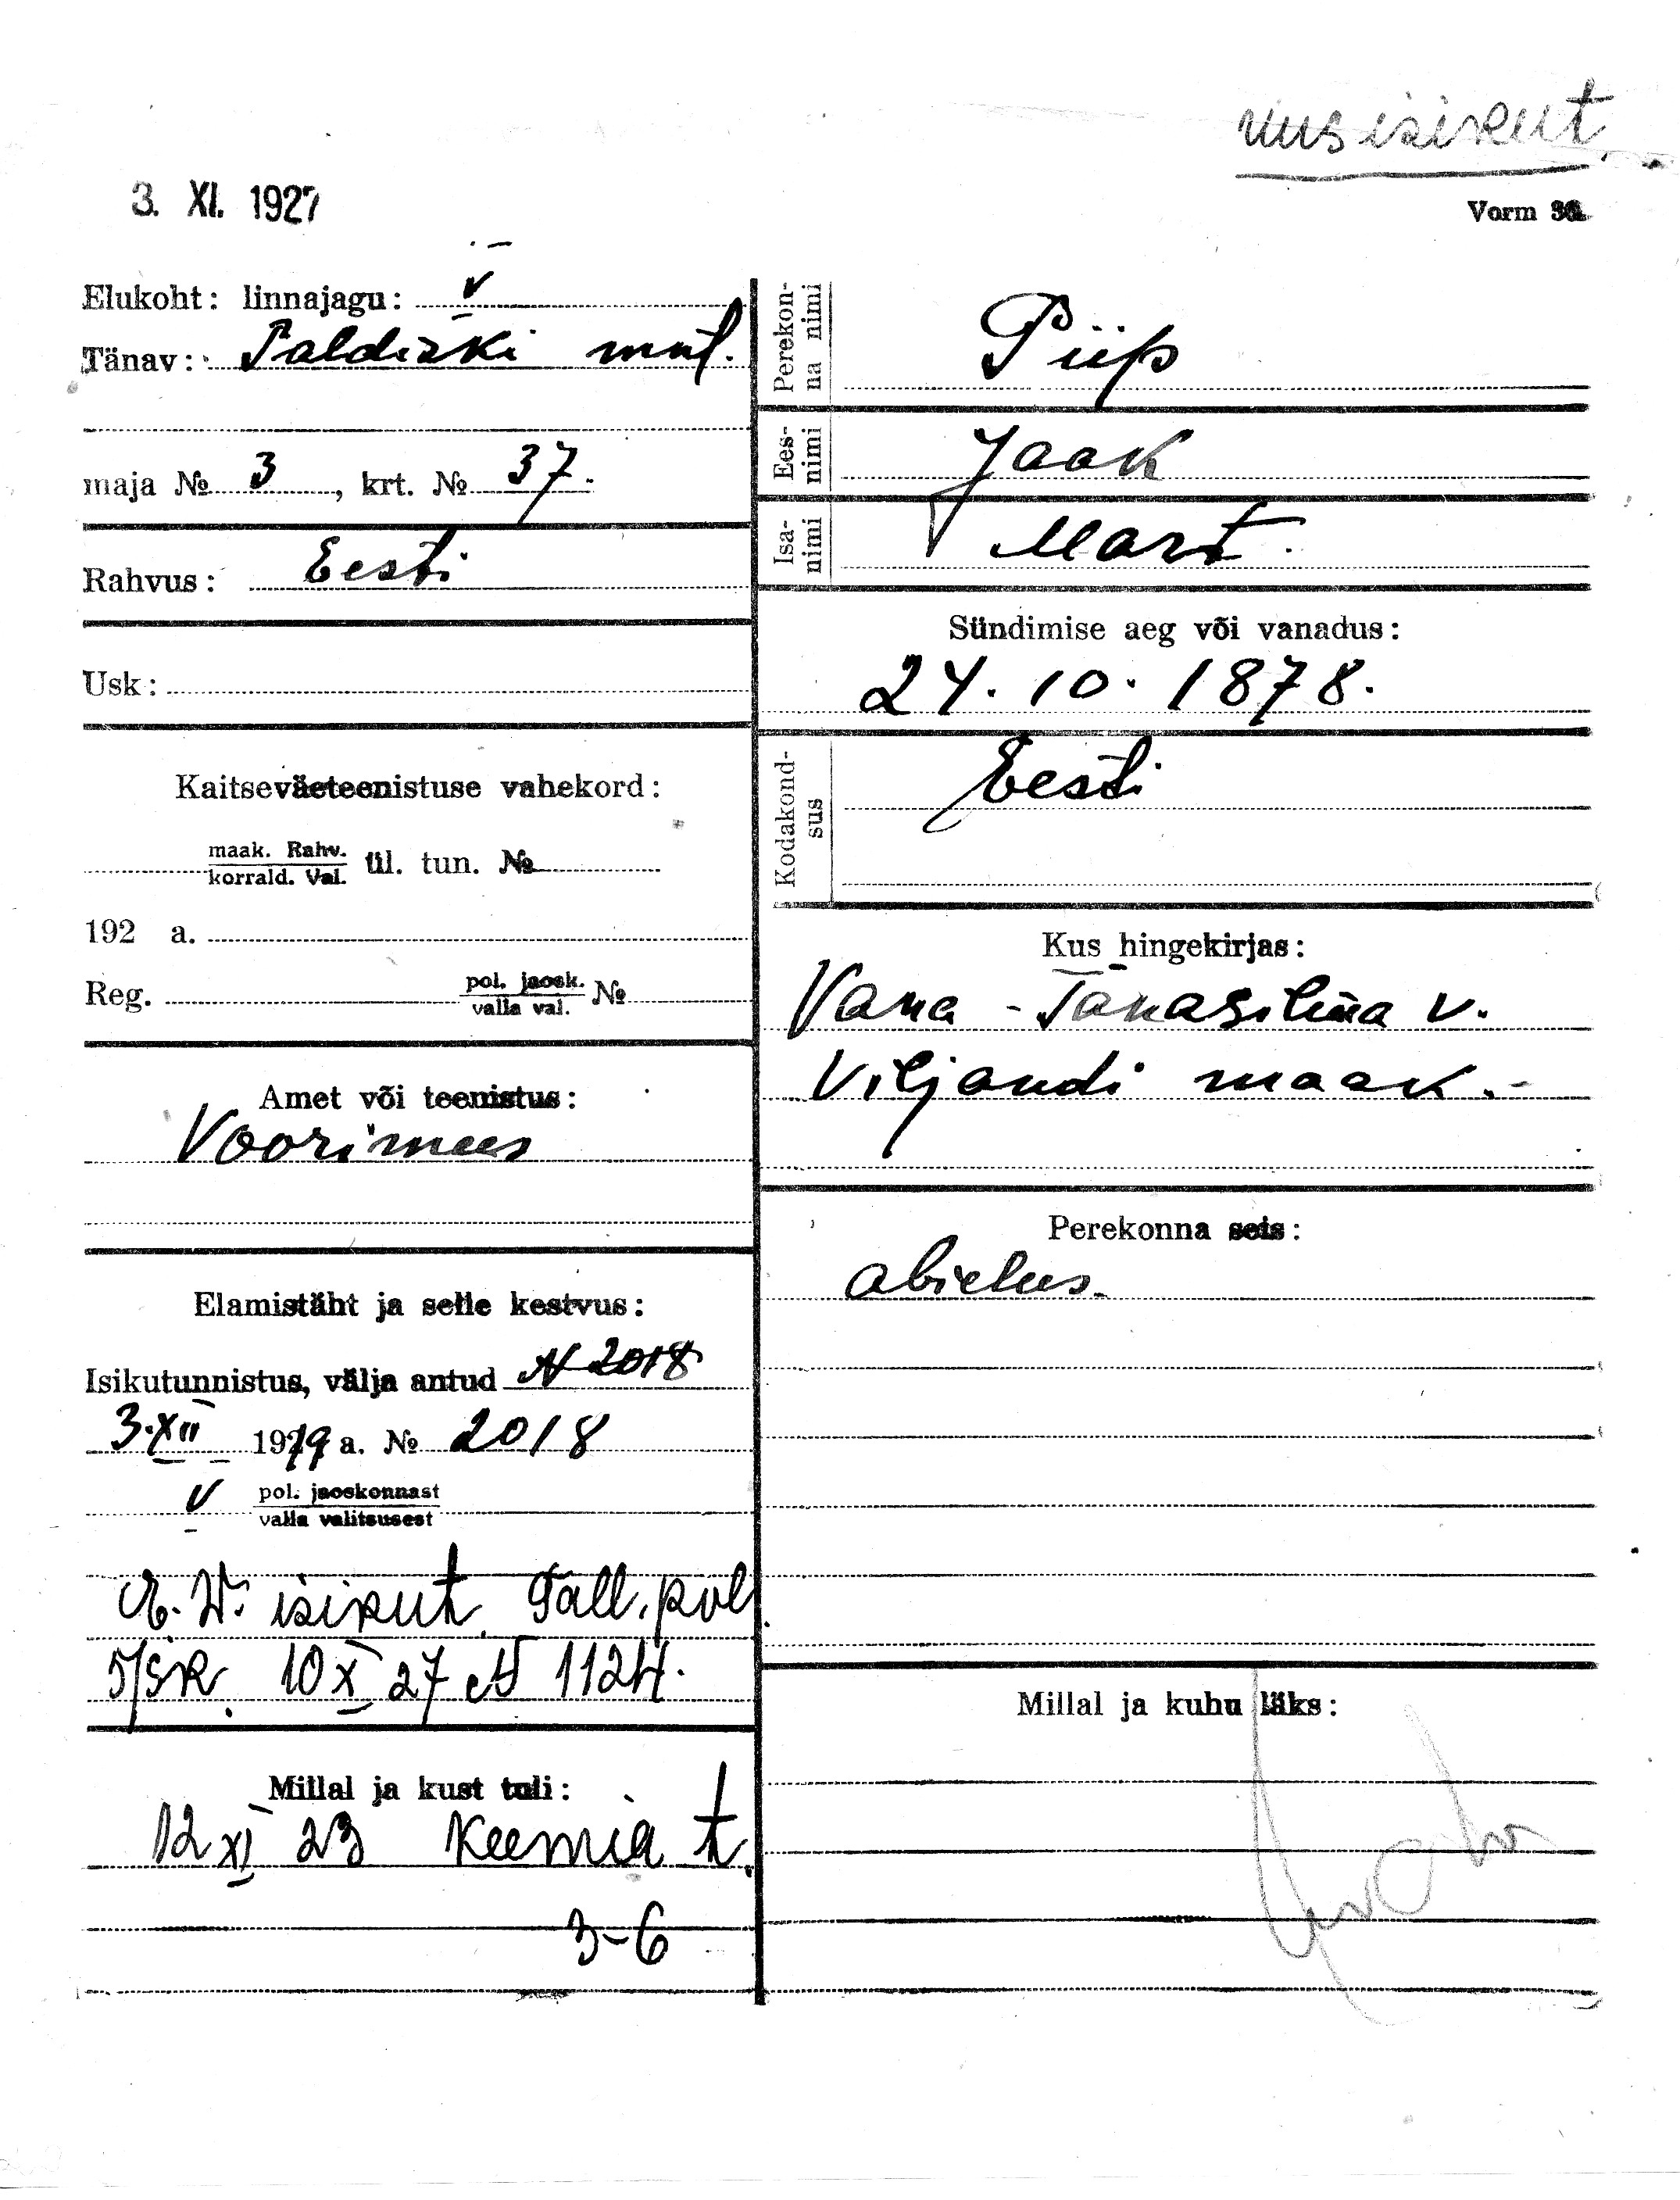 uus isikut.
3. XI. 1927
Vorm 36.
Elukoht: linnajagu: V
Tänav: Paldiski mnt.
maja № 3, krt. № 37.
Rahvus: Eesti
Usk:
Kaitseväeteenistuse vahekord:
maak. Rahv.
korrald. Val. ül. tun. №
192 a.
Reg. pol. jaosk. №
valla val.
Amet või teenistus:
Voorimees
Elamistäht ja selle kestvus:
Isikutunnistus, välja antud N 2018
3.XII 1919 a. № 2018
V pol. jaoskonnast
valla valitsusest
E. W. isikut. Tall. pol.
5/jsk. 10 XI 27 № 1124.
Millal ja kust tuli:
12 XI 23 Keemia t.
3-6
Perekonna nimi
Piip
Eesnimi
Jaak
Isanimi
Mart.
Sündimise aeg või vanadus:
24. 10. 1878.
Kodakondsus
Eesti
Kus hingekirjas:
Vana-Tänasilma v.
Viljandi maak.-
Perekonna seis:
abielus.
Millal ja kuhu läks: